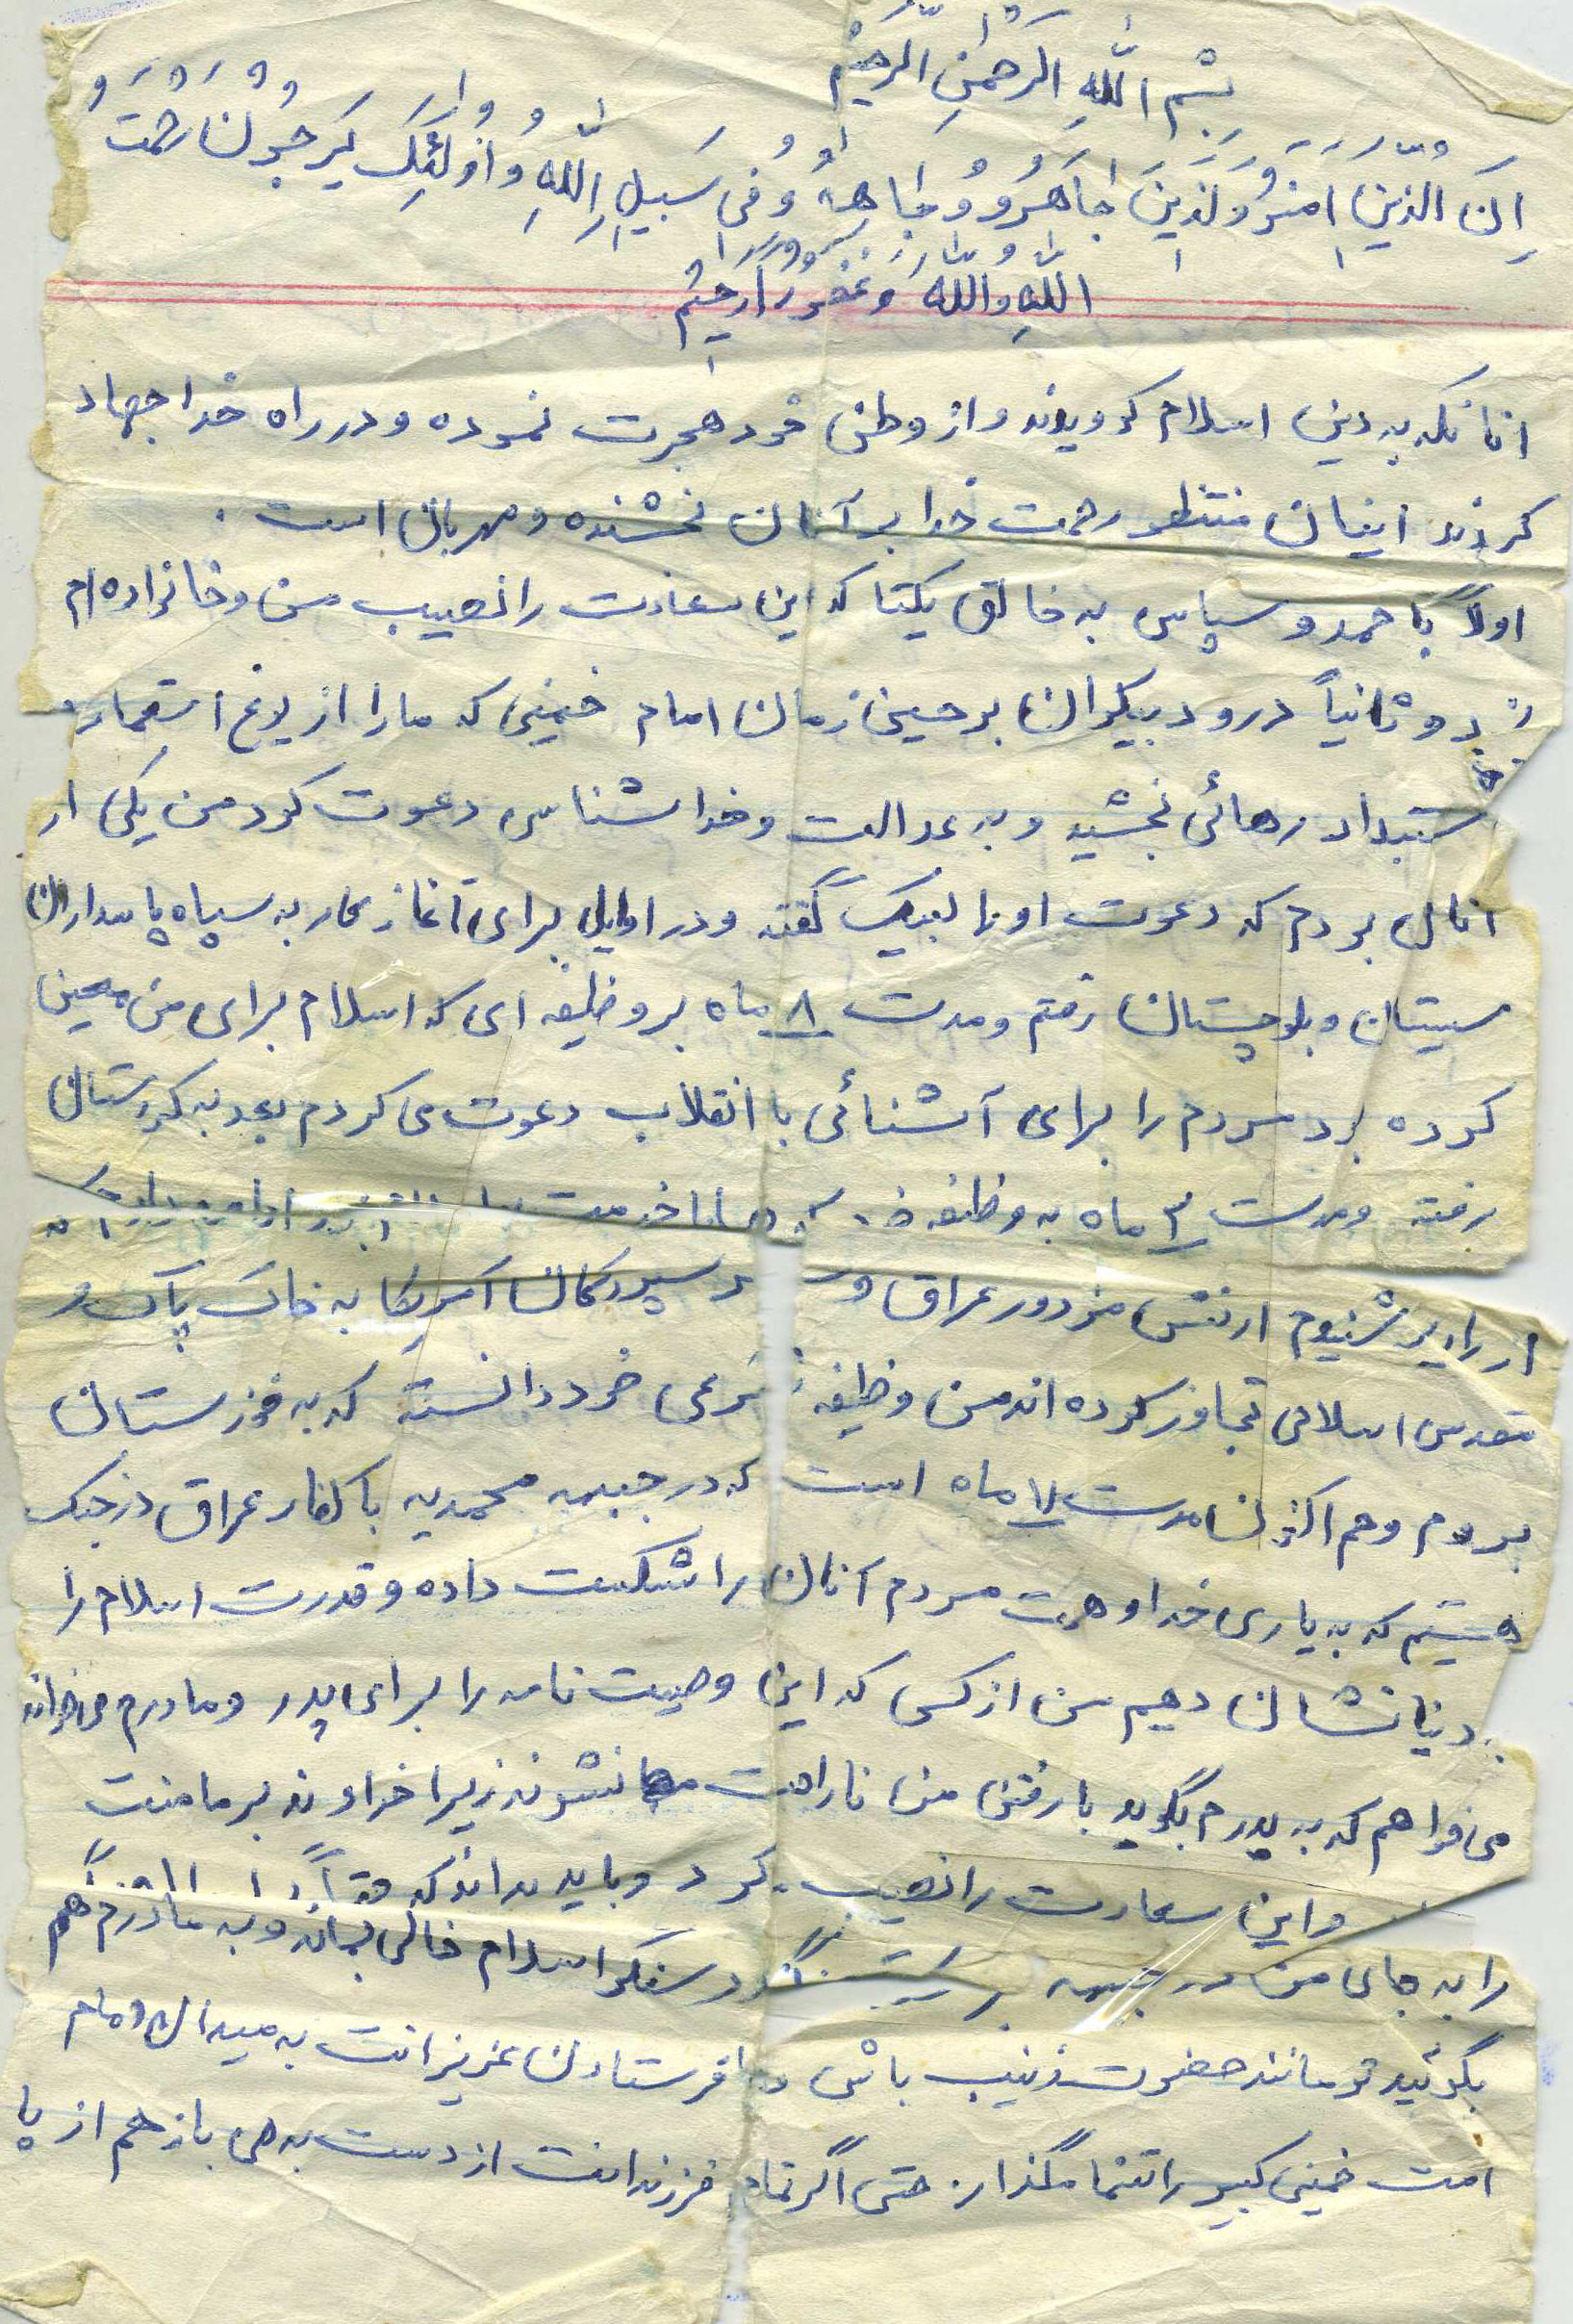 بسم الله الرحمن الرحیم
اِنَ الذینِ امنو ولذینَ جاهَرو وجاهدُ وفی سَبیلِ اللهِ وُاوُلئِکَ یَرجُونَ رحمت
اللهِ واللهُ وغفورَ رحیم
انانکه به دین اسلام گرویدند و از وطن خود هجرت نموده و در راه خدا جهاد
کردند اینان منتظر رحمت خدا بر آنان بخشنده و مهربان است .
اولاً با حمد و سپاس به خالق یکتا که این سعادت را نصیب من و خانواده ام
و ثانیاً درود بیکران بر حسین زمان امام خمینی که ما را از یوغ استعمار و
ستبداد رهائی بخشید و به عدالت و خداشناسی دعوت کرد من یکی از
انان بودم که دعوت او را لبیک گفته و در اوایل برای آغاز کار به سپاه پاسداران
سیستان و بلوچستان رفتم و مدت ۸ ماه بر وظیفه ای که اسلام برای من معین
کرده بود مردم را برای آشنائی با انقلاب دعوت می کردم بعد به کردستان
رفته و مدت ۳ ماه به وظیفه خود خدمت
از رادیو شنیدم ارتش مزدور عراق و سرسپردگان آمریکا به خاک پاک و
مقدس اسلامی تجاوز کرده اند من وظیفه شرعی خود دانسته که به خوزستان
بروم و هم اکنون مدت ۷ ماه است که در جبهه محمدیه با کفار عراق در جنگ
هستیم که به یاری خدا و همت مردم آنان را شکست داده و قدرت اسلام را
به دنیا نشان دهیم من از کسی که این وصیت نامه را برای پدر و مادرم می خواند
می خواهم که به پدرم بگوید با رفتن من ناراحت نشوند زیرا خداوند بر ما منت
و این سعادت را نصیب کرد و باید بداند که
را به جای من در جبهه سنگر اسلام خالی بماند و به مادرم هم
بگوئید تو مانند حضرت زینب باش و با فرستادن عزیزانت به میدان امام
امت خمینی کبیر را تنها مگذار. حتی اگر تمام فرزندانت از دست بدهی باز هم از پا